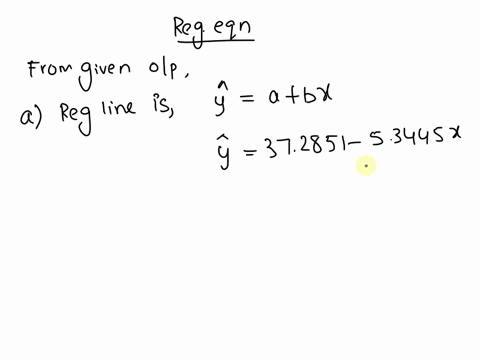 Reg eqn
From given o/p,
a) Reg line is, ŷ = a+bx
ŷ = 37.2851 - 5.3445x